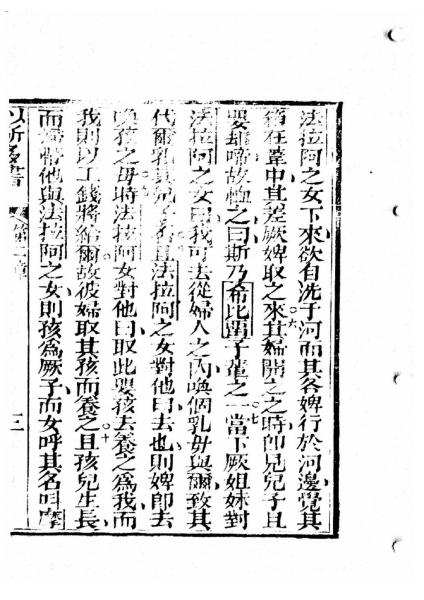 法拉阿之女下來欲自洗于河而其各婢行於河邊覺其
箱在葦中其差厥婢取之來○六其婦開之之時卽見兒子且
嬰却啼故恤之曰斯乃希比畱子輩之一○七當下厥姐妹對
法拉阿之女曰我可去從婦人之內喚個乳母與爾致其
代爾乳其兒子否且法拉阿之女對他曰去也則婢卽去
喚孩之母時法拉阿女對他曰取此嬰孩去養之爲我而
我則以工錢將給爾故彼婦取其孩而養之○十且孩兒生長
而婦帶他與法拉阿之女則孩爲厥子而女呼其名叫摩
以所多書 第二章